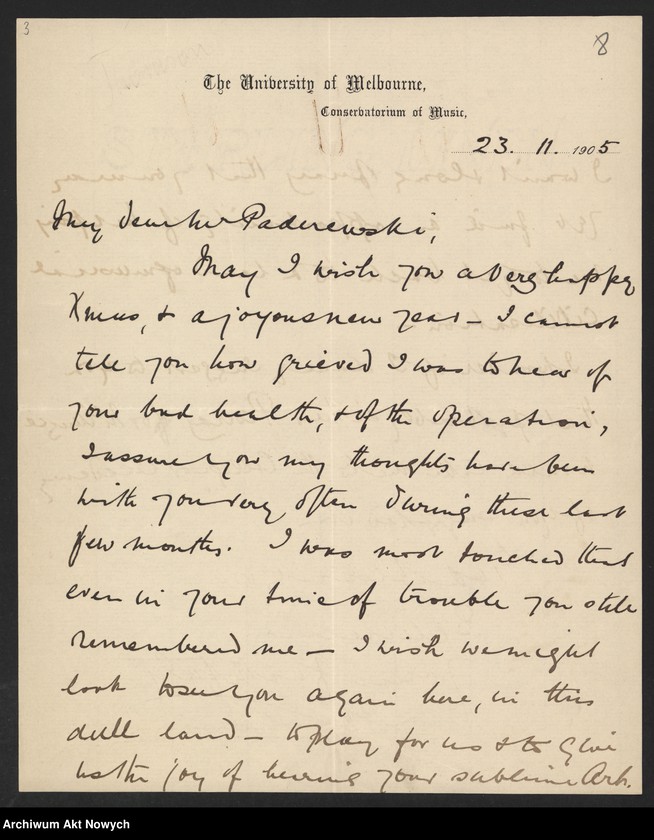 3
8
The University of Melbourne,
Conservatorium of Music,
23. 11. 1905
My dear Mr Paderewski,
May I wish you a very happy
Xmas, & a joyous new year – I cannot
tell you how grieved I was to hear of
your bad health, & of the operation,
I assure you my thoughts have been
with you very often during these last
few months. I was most touched that
even in your time of trouble you still
remembered me – I wish we might
look to see you again here, in this
dull land – to play for us & to give
us the joy of hearing your sublime Art.
Archiwum Akt Nowych